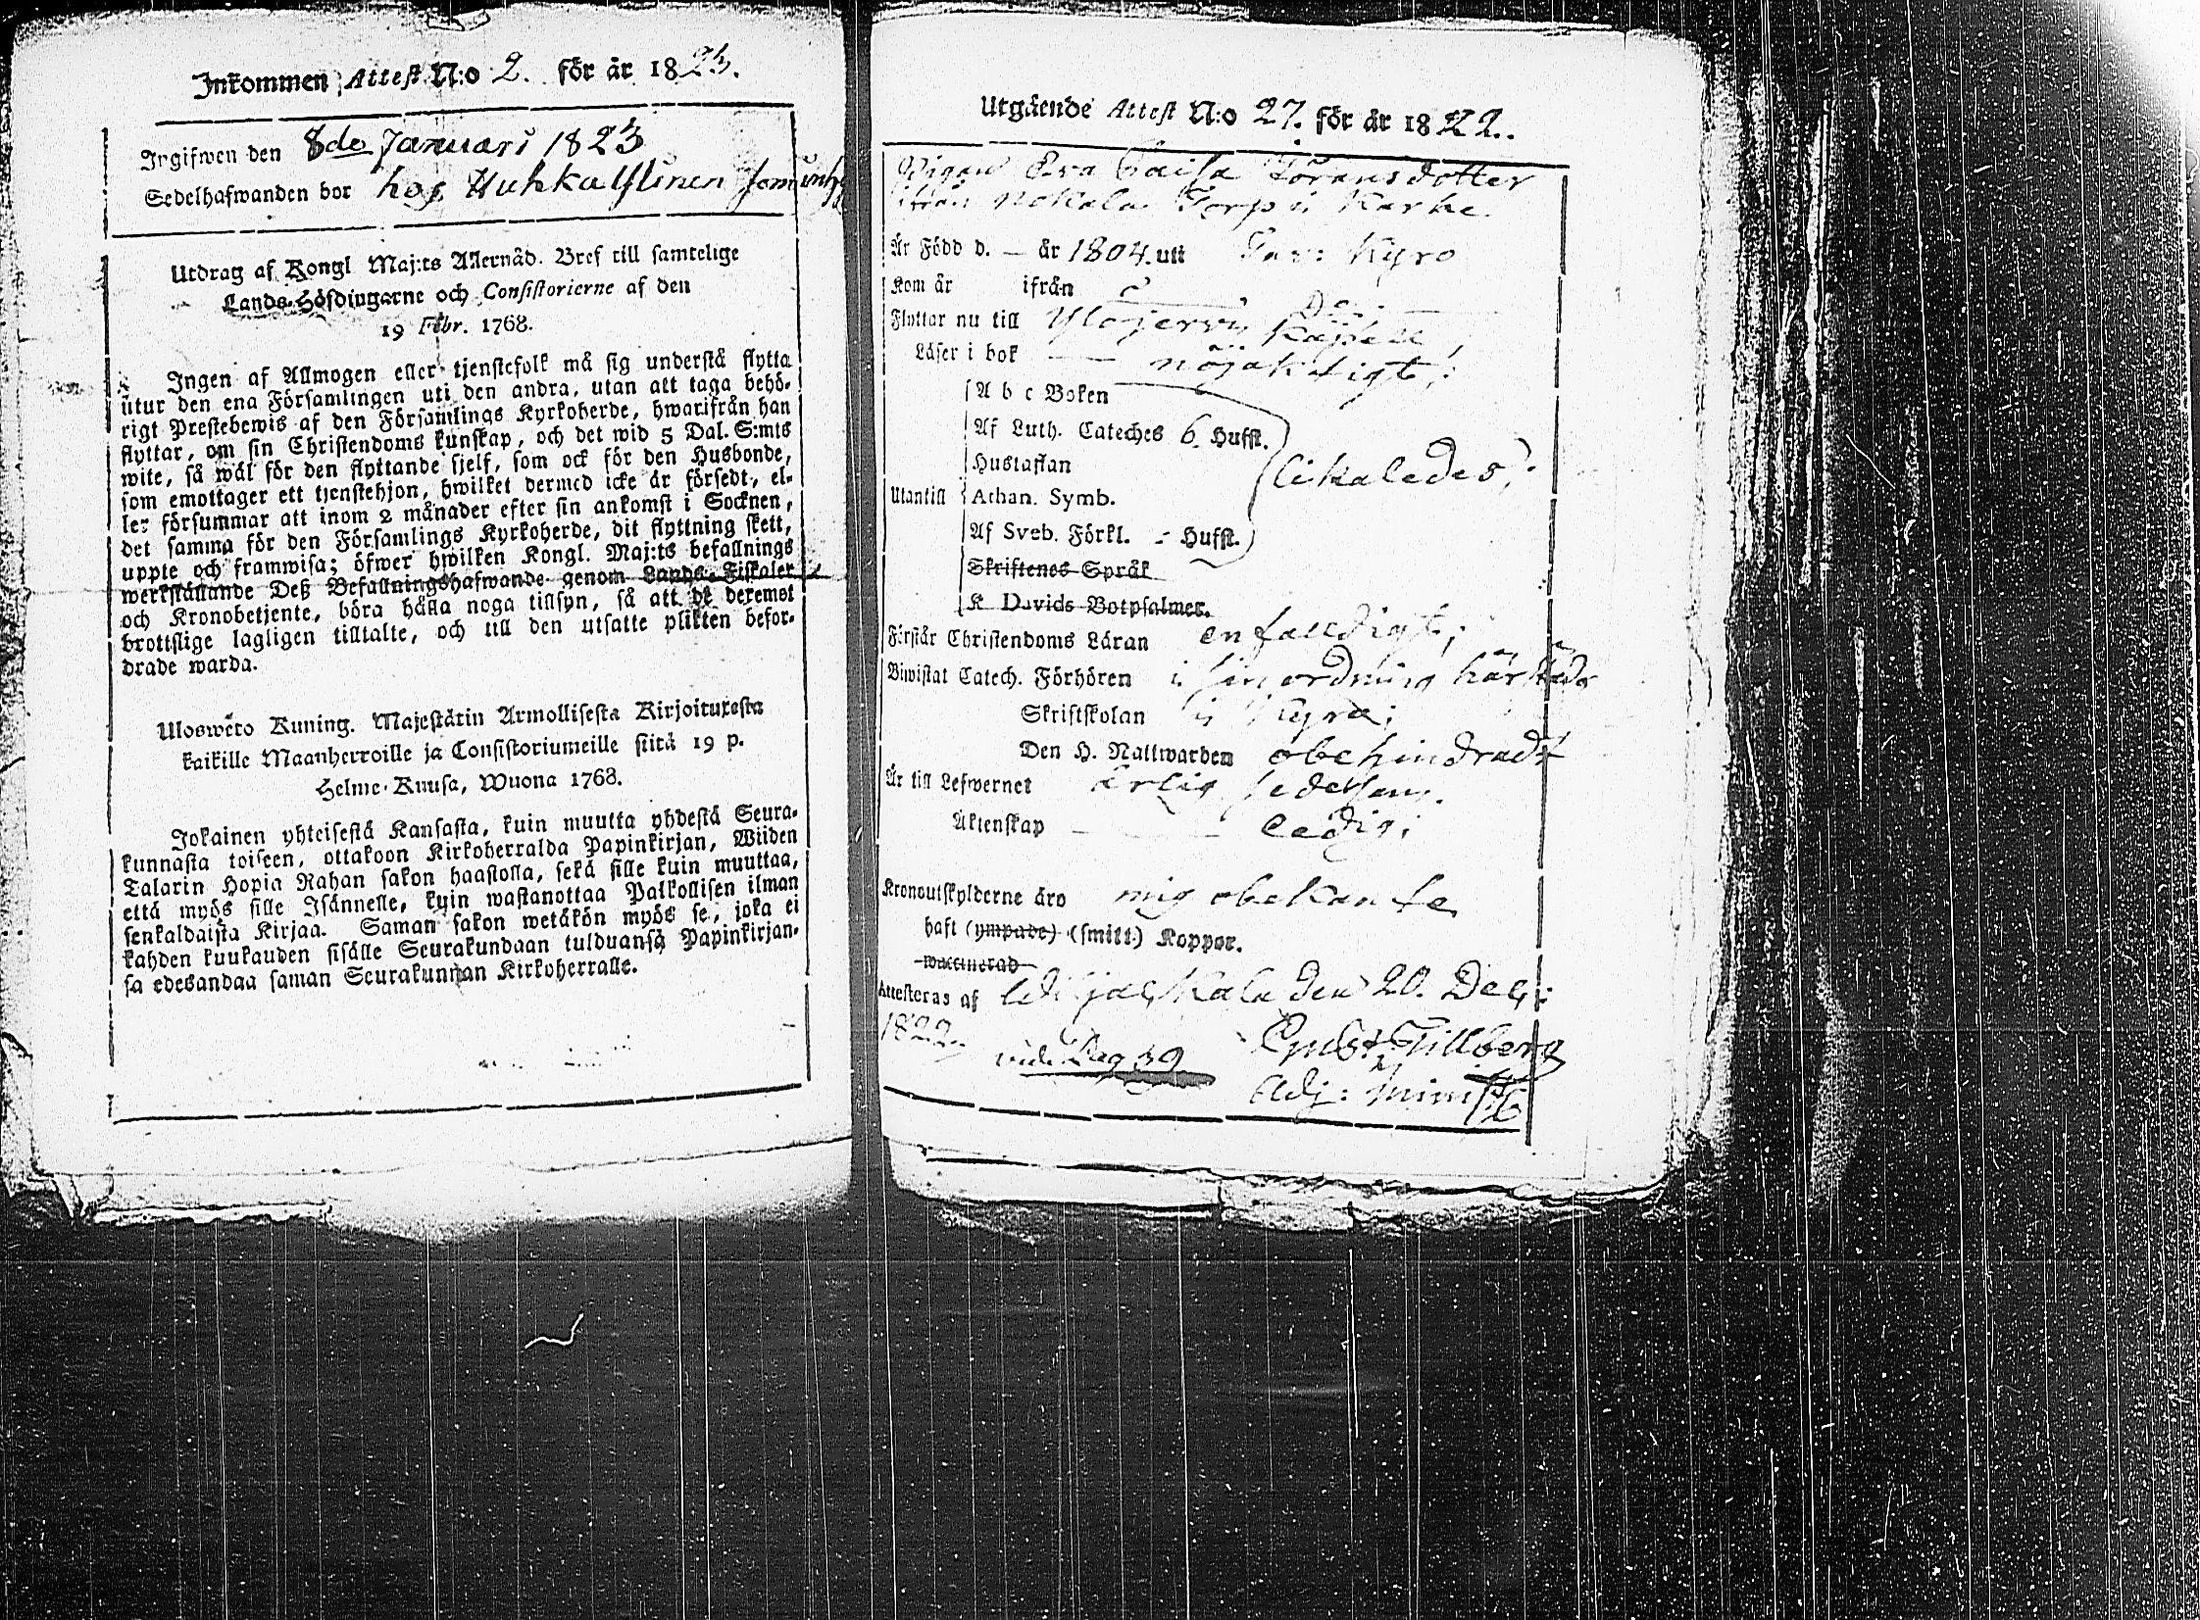 Inkommen Attest N:o 2. för år 1823.
Ingifwen den 8de Januari 1823
Sedelhafwanden bor hos
Utdrag af Kongl Maj:ts Allernåd. Bref till samtelige
Lands-Höfdingarne och Consistorierne af den
19 Febr. 1768.
Ingen af Allmogen eller tjenstefolk må sig understå flytta
utur den ena Församlingen uti den andra, utan att taga behö-
rigt Prestebewis af den Församlings Kyrkoherde, hwarifrån han
flyttar, om sin Christendoms kunskap, och det wid 5 Dal. S:mts
wite, så wäl för den flyttande sjelf, som ock för den Husbonde,
som emottager ett tjenstehjon, hwilket dermed icke är försedt, el-
ler försummar att inom 2 månader efter sin ankomst i Socknen,
det samma för den Församlings Kyrkoherde, dit flyttning skett,
uppte och framwisa; öfwer hwilken Kongl. Maj:ts befallnings
werkställande Deß Befallningshafwande genom Lands-Fiskaler
och Kronobetjente, böra hålla noga tillsyn, så att de deremot
brottslige lagligen tilltalte, och till den utsatte plikten befor-
drade warda.
Uloswëto Kuning. Majestätin Armollisesta Kirjoituxesta
kaikille Maanherroille ja Consistoriumeille siitä 19 p.
Helme-Kuusa, Wuona 1768.
Jokainen yhteisestä Kansasta, kuin muutta yhdestä Seura-
kunnasta toiseen, ottakoon Kirkoherralda Papinkirjan, Wiiden
Talarin Hopia Rahan sakon haastolla, sekä sille kuin muuttaa,
että myös sille Isännelle, kuin wastanottaa Palkollisen ilman
senkaldaista Kirjaa. Saman sakon wetäkön myös se, joka ei
kahden kuukauden sisälle Seurakundaan tulduansa Papinkirjan-
sa edesandaa saman Seurakunnan Kirkoherralle.
Utgående Attest N:o 27. för år 1822.
Pigan Eva Caisa Göransdotter
ifrån Nokala Torp i Karhe
Är Född d. — år 1804. uti Tav: Kyro
Kom år ifrån
Flyttar nu till Ylöjervi Kapell;
Läser i bok — nöjaktigt;
A b c Boken
Af Luth. Cateches 6. Hufst.
Hustaflan likaledes;
Utantill Athan. Symb.
Af Sveb. Förkl. - Hufst.
Skriftenes Språk
K Davids Botpsalmer.
Förstår Christendoms Läran enfaldigt;
Biwistat Catech. Förhören i sin ordning härstäds
Skriftskolan i Kyro;
Den H. Nattwarden obehindradt
Är till Lefwernet ärlig sedesam.
Äktenskap — ledig;
Kronoutskylderne äro mig obekante
haft (ympade) (smitt.) Koppor.
waccinerad
Attesteras af den 20. Dec:
1822
vide Pag 39 Gust: Tillberg
Adj: Minist